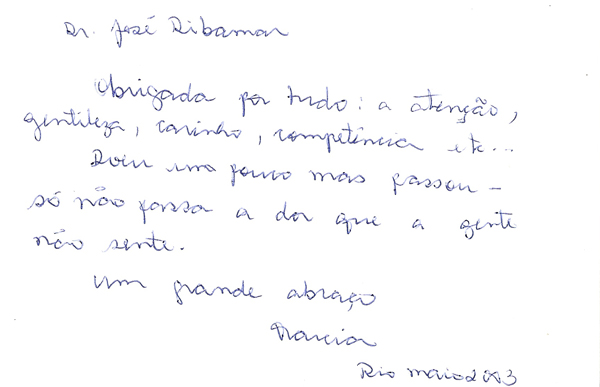 Dr. José Ribamar
Obrigada por tudo: a atenção,
gentileza, carinho, competência etc...
Doeu um pouco mas passou –
só não passa a dor que a gente
não sente.
Um grande abraço
Marcia
Rio maio 2003